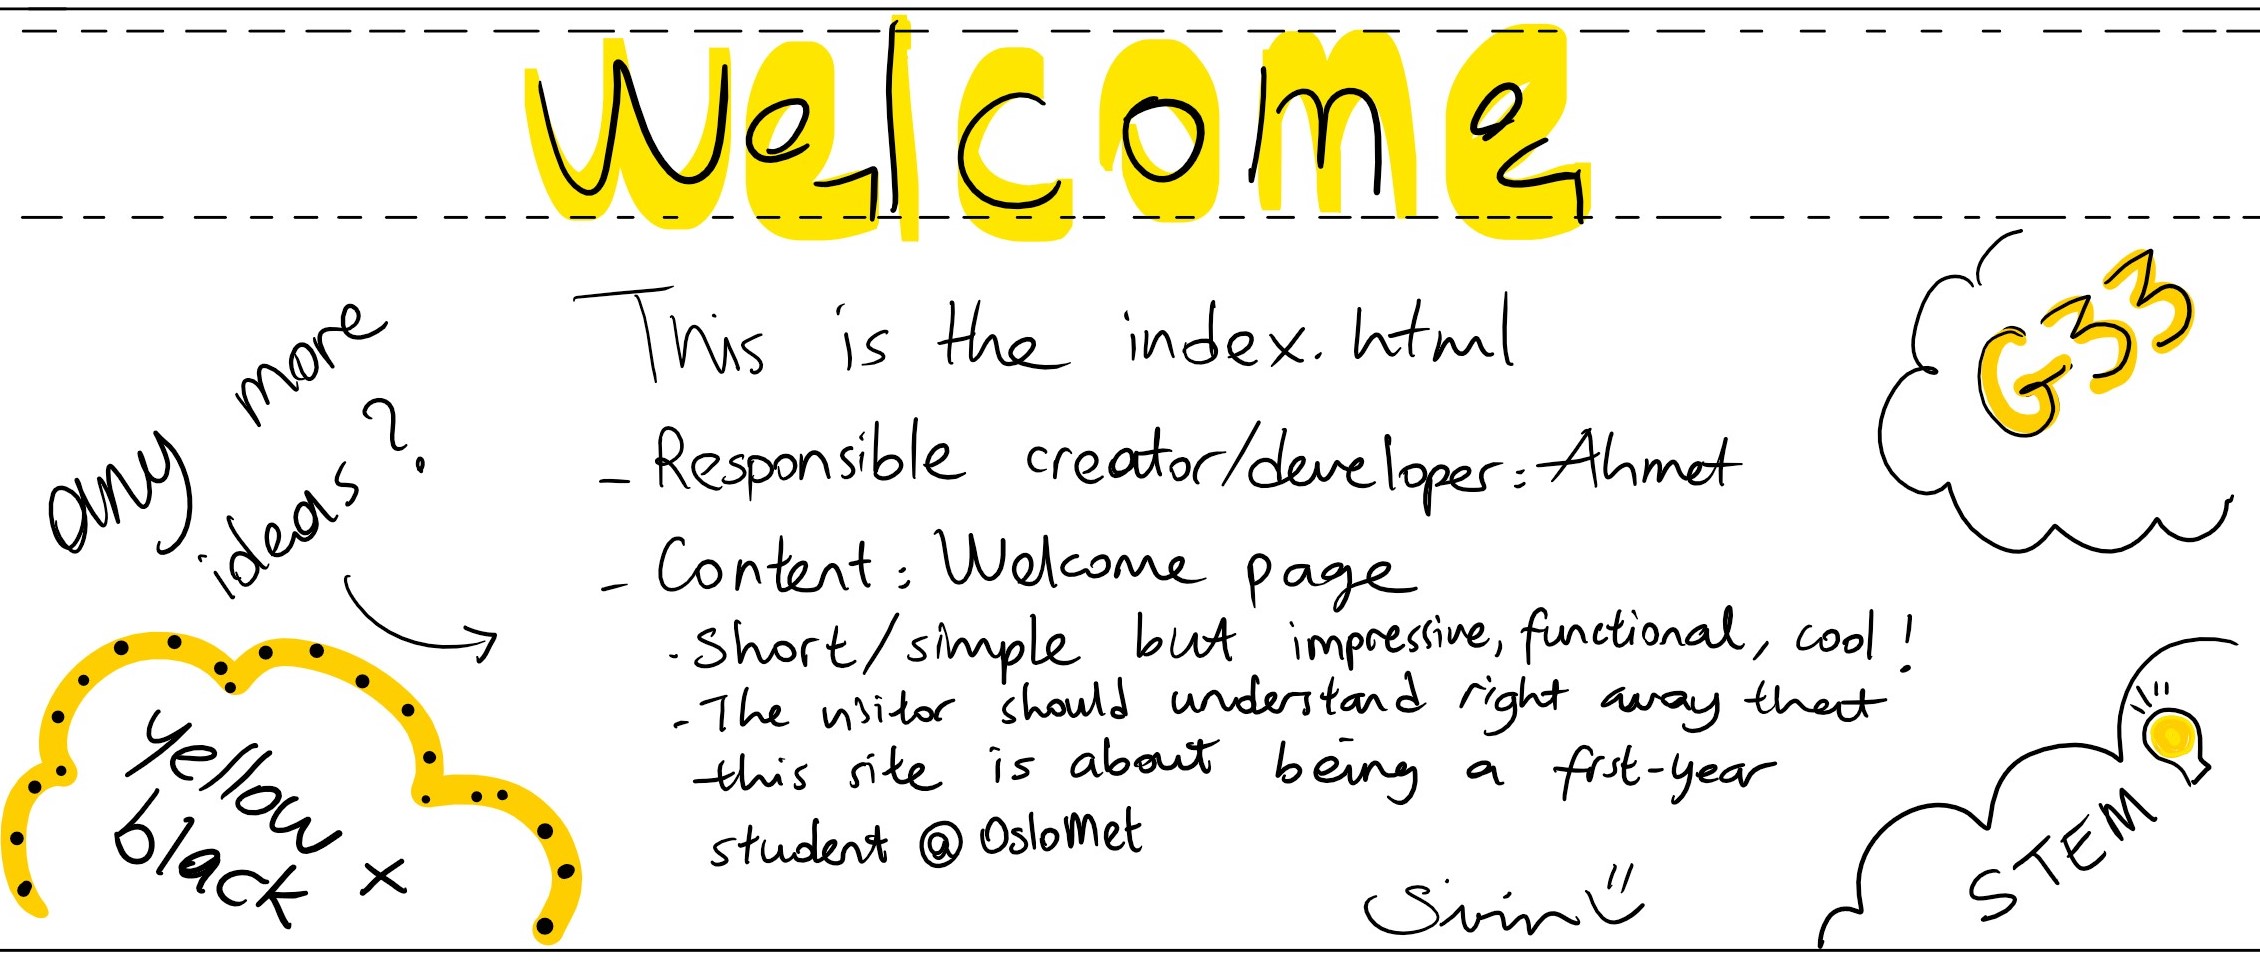 Welcome
This is the index.html
G33
any more
ideas?
- Responsible creator/developer: Ahmet
- Content: Welcome page
· Short/simple but impressive, functional, cool!
- The visitor should understand right away that
this site is about being a first-year
student @ OsloMet
yellow x
black
STEM